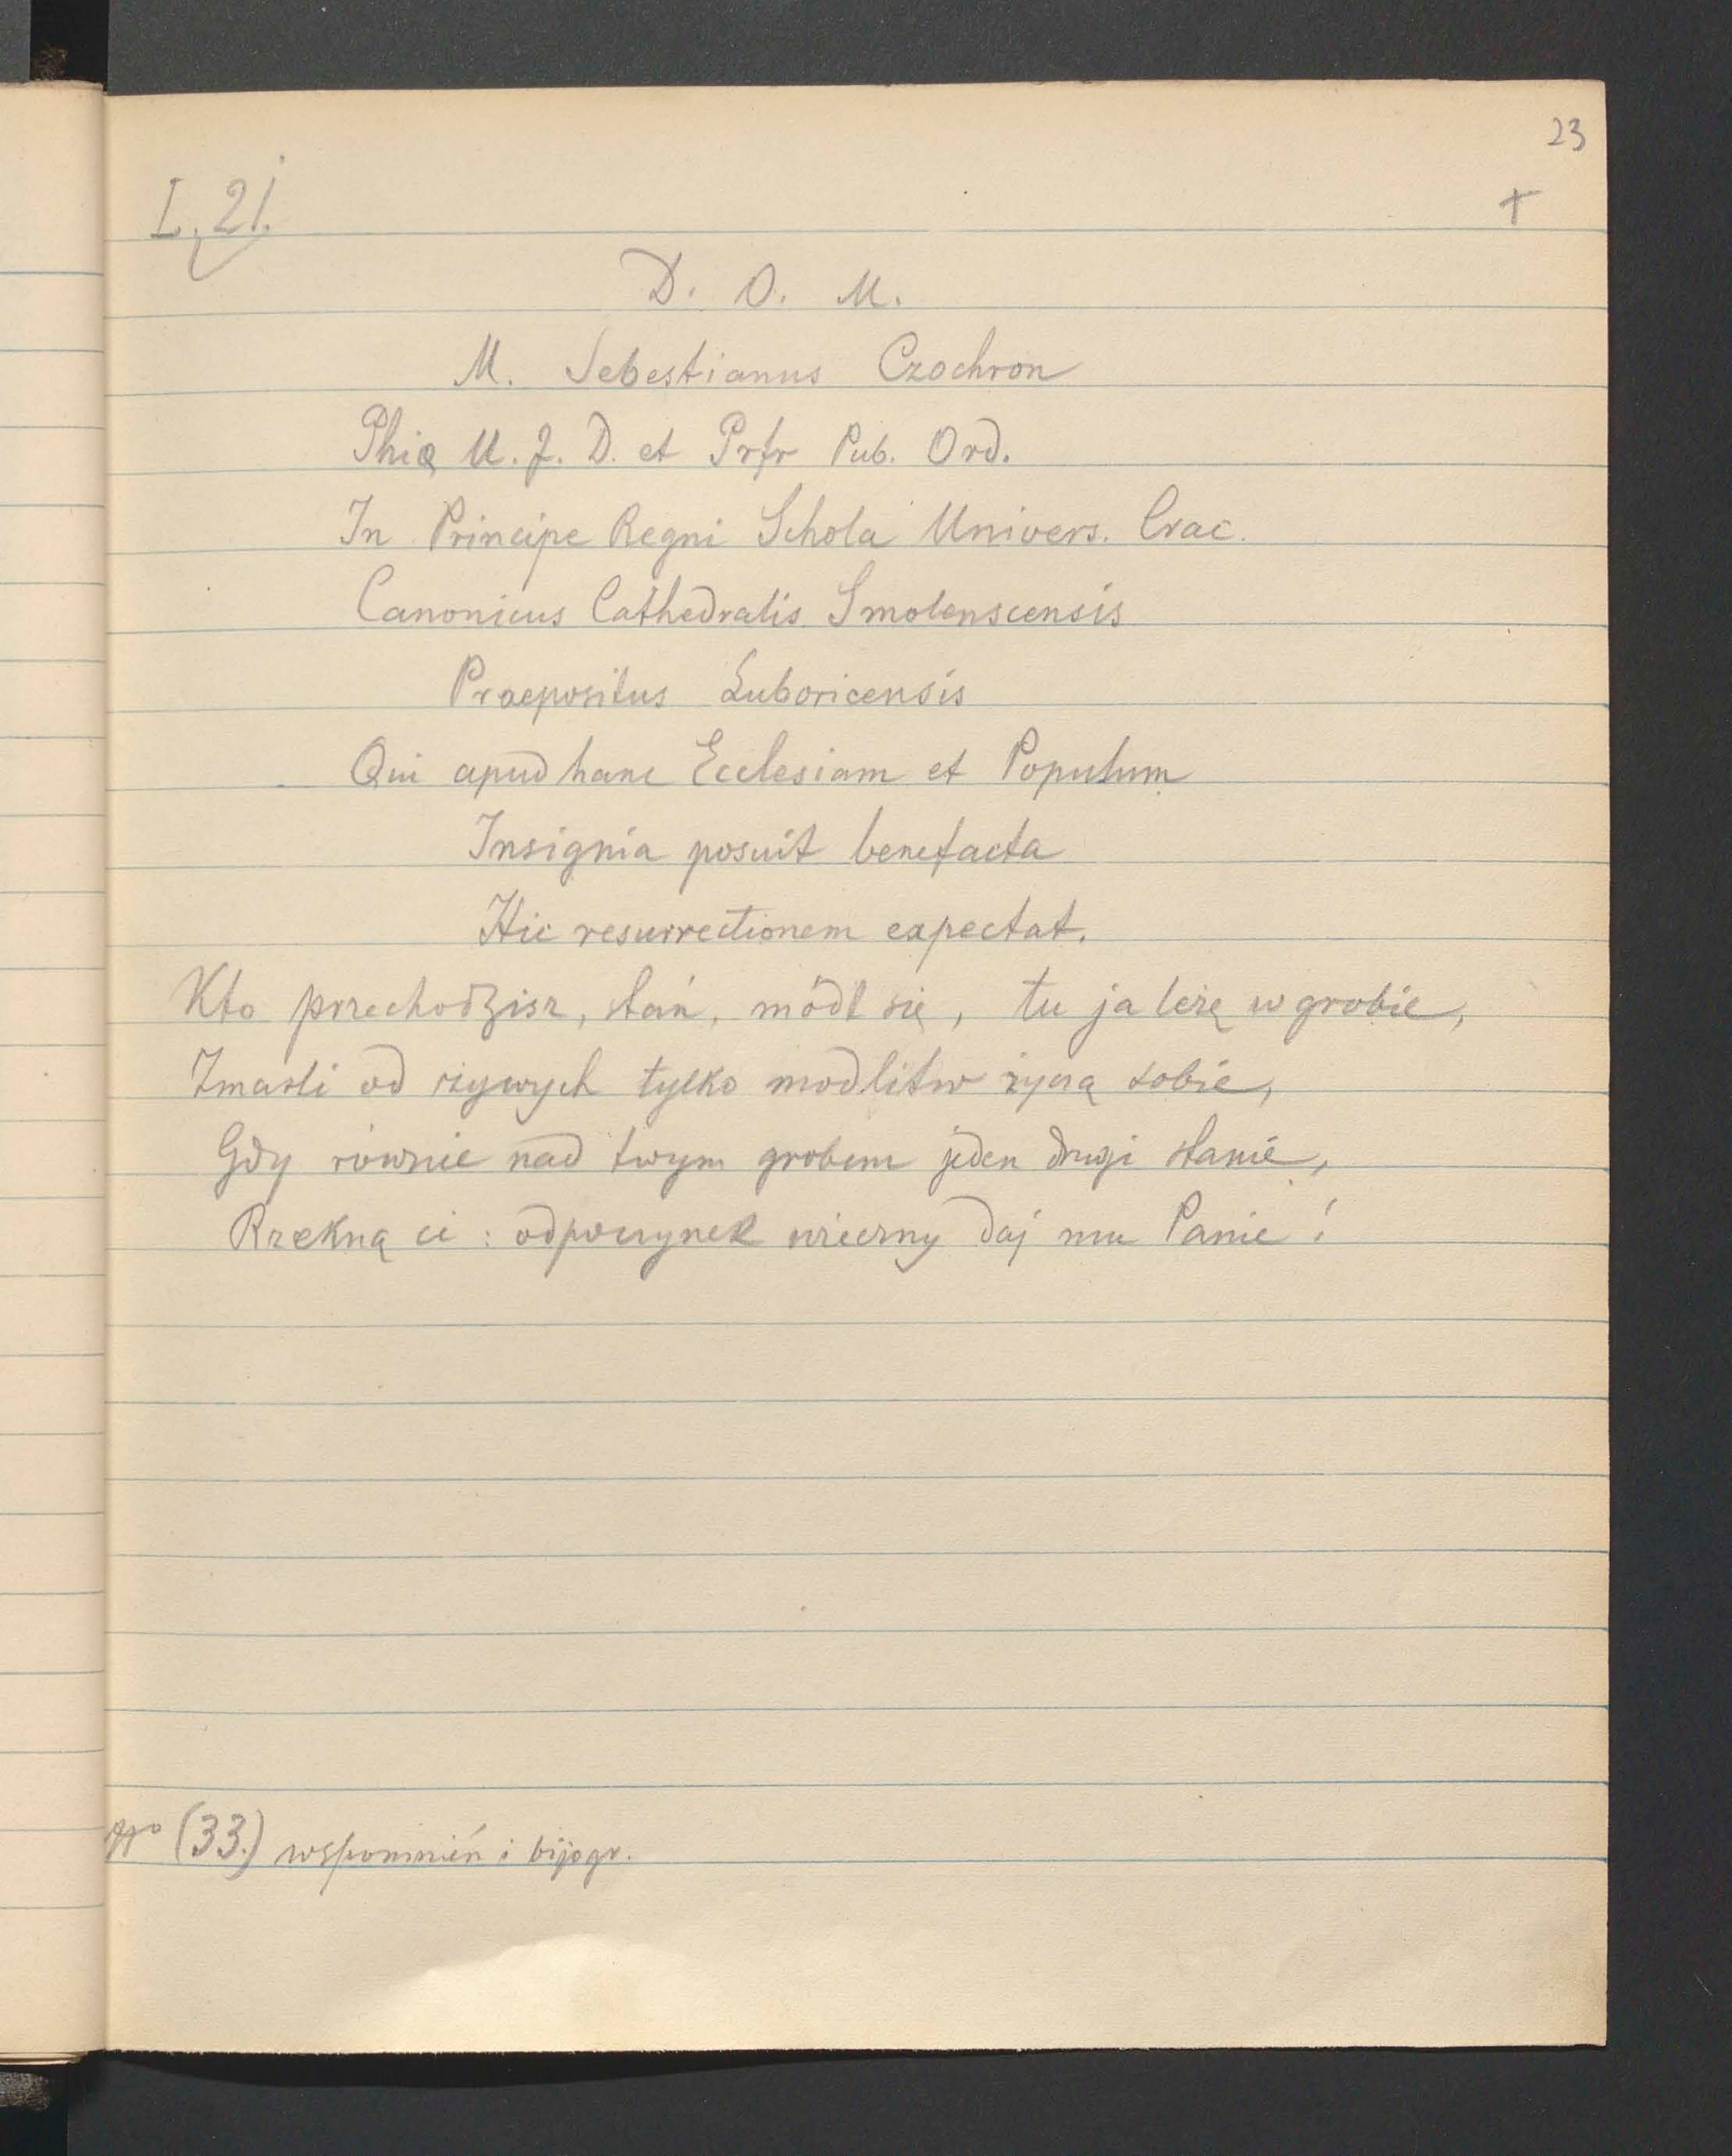 23
L. 21.
+
D. O. M.
M. Sebestianus Czochron
Phiæ U. J. D. et Prfr Pub. Ord.
In Principe Regni Schola Univers. Crac.
Canonicus Cathedralis Smolenscensis
Praepositus Luboricensis
Qui apud hanc Ecclesiam et Populum
Insignia posuit benefacta
Hic resurrectionem expectat.
Kto przechodzisz, stań, módl się, tu ja leżę w grobie,
Zmarli od żywych tylko modlitw życzą sobie,
Gdy równie nad twym grobem jeden drugi stanie,
Rzekną ci: odpoczynek wieczny daj mu Panie!
(33.) wspomnień i bijogr.